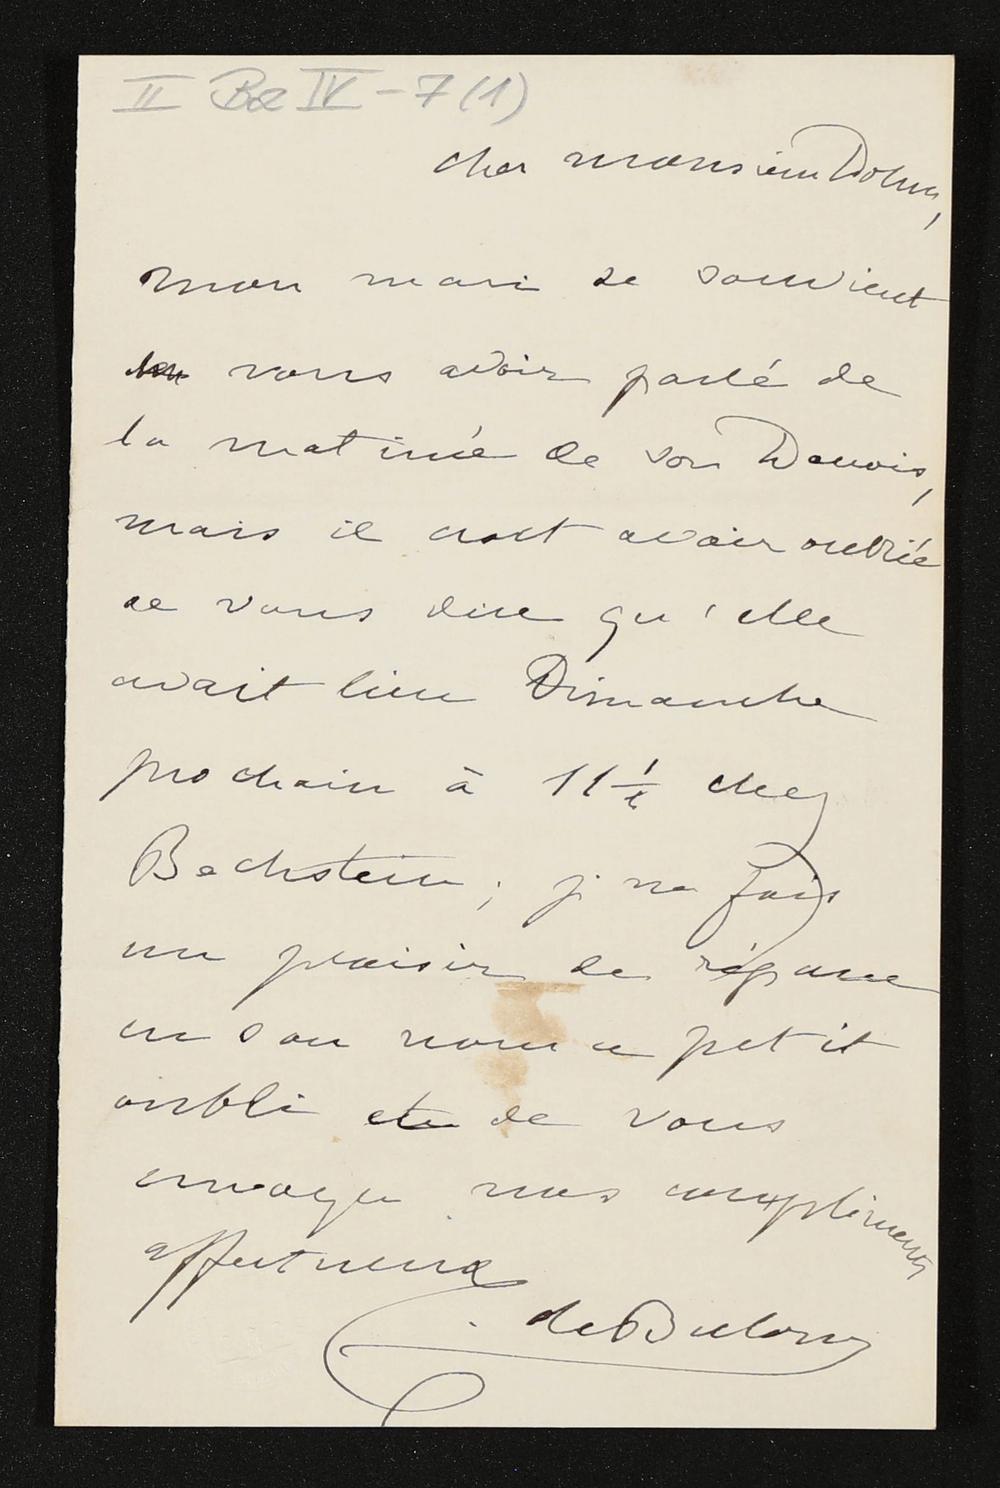 II Be IV - 7 (1)
cher monsieur Dohm,
mon mari se souvient
vous avoir parlé de
la matinée de son
mais il croit avoir oublié
de vous dire qu'elle
avait lieu Dimanche
prochain à 11 1/2 chez
Bechstein; je me fais
un plaisir de réparer
en son nom ce petit
oubli et de vous
envoyer nos compliments
affectueux
C. de Bulow